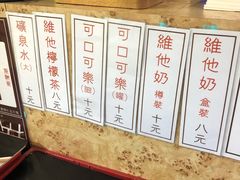 維他奶 盒裝 八元
維他奶 樽裝 十元
可口可樂(罐)十元
可口可樂 十元
維他檸檬茶 八元
礦泉水(大)十元